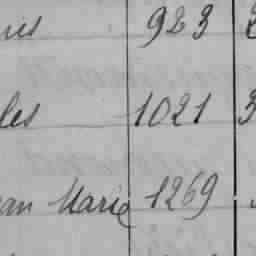 923
les 1021 3
an Marie 1269